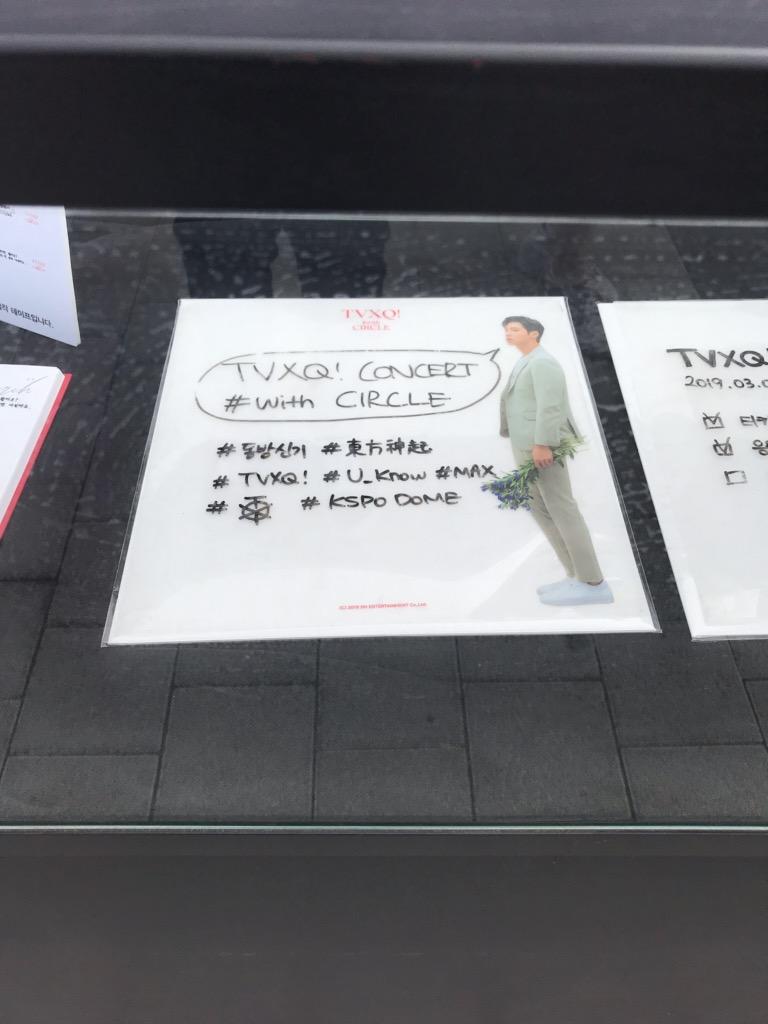 TVXQ!
CIRCLE
TVXQ! CONCERT
#with CIRCLE
#동방신기 #東方神起
#TVXQ! #U_Know #MAX
# # KSPO DOME
(C) 2019 SM ENTERTAINMENT Co.,Ltd.
테이프입니다.
TVXQ!
2019.03.0